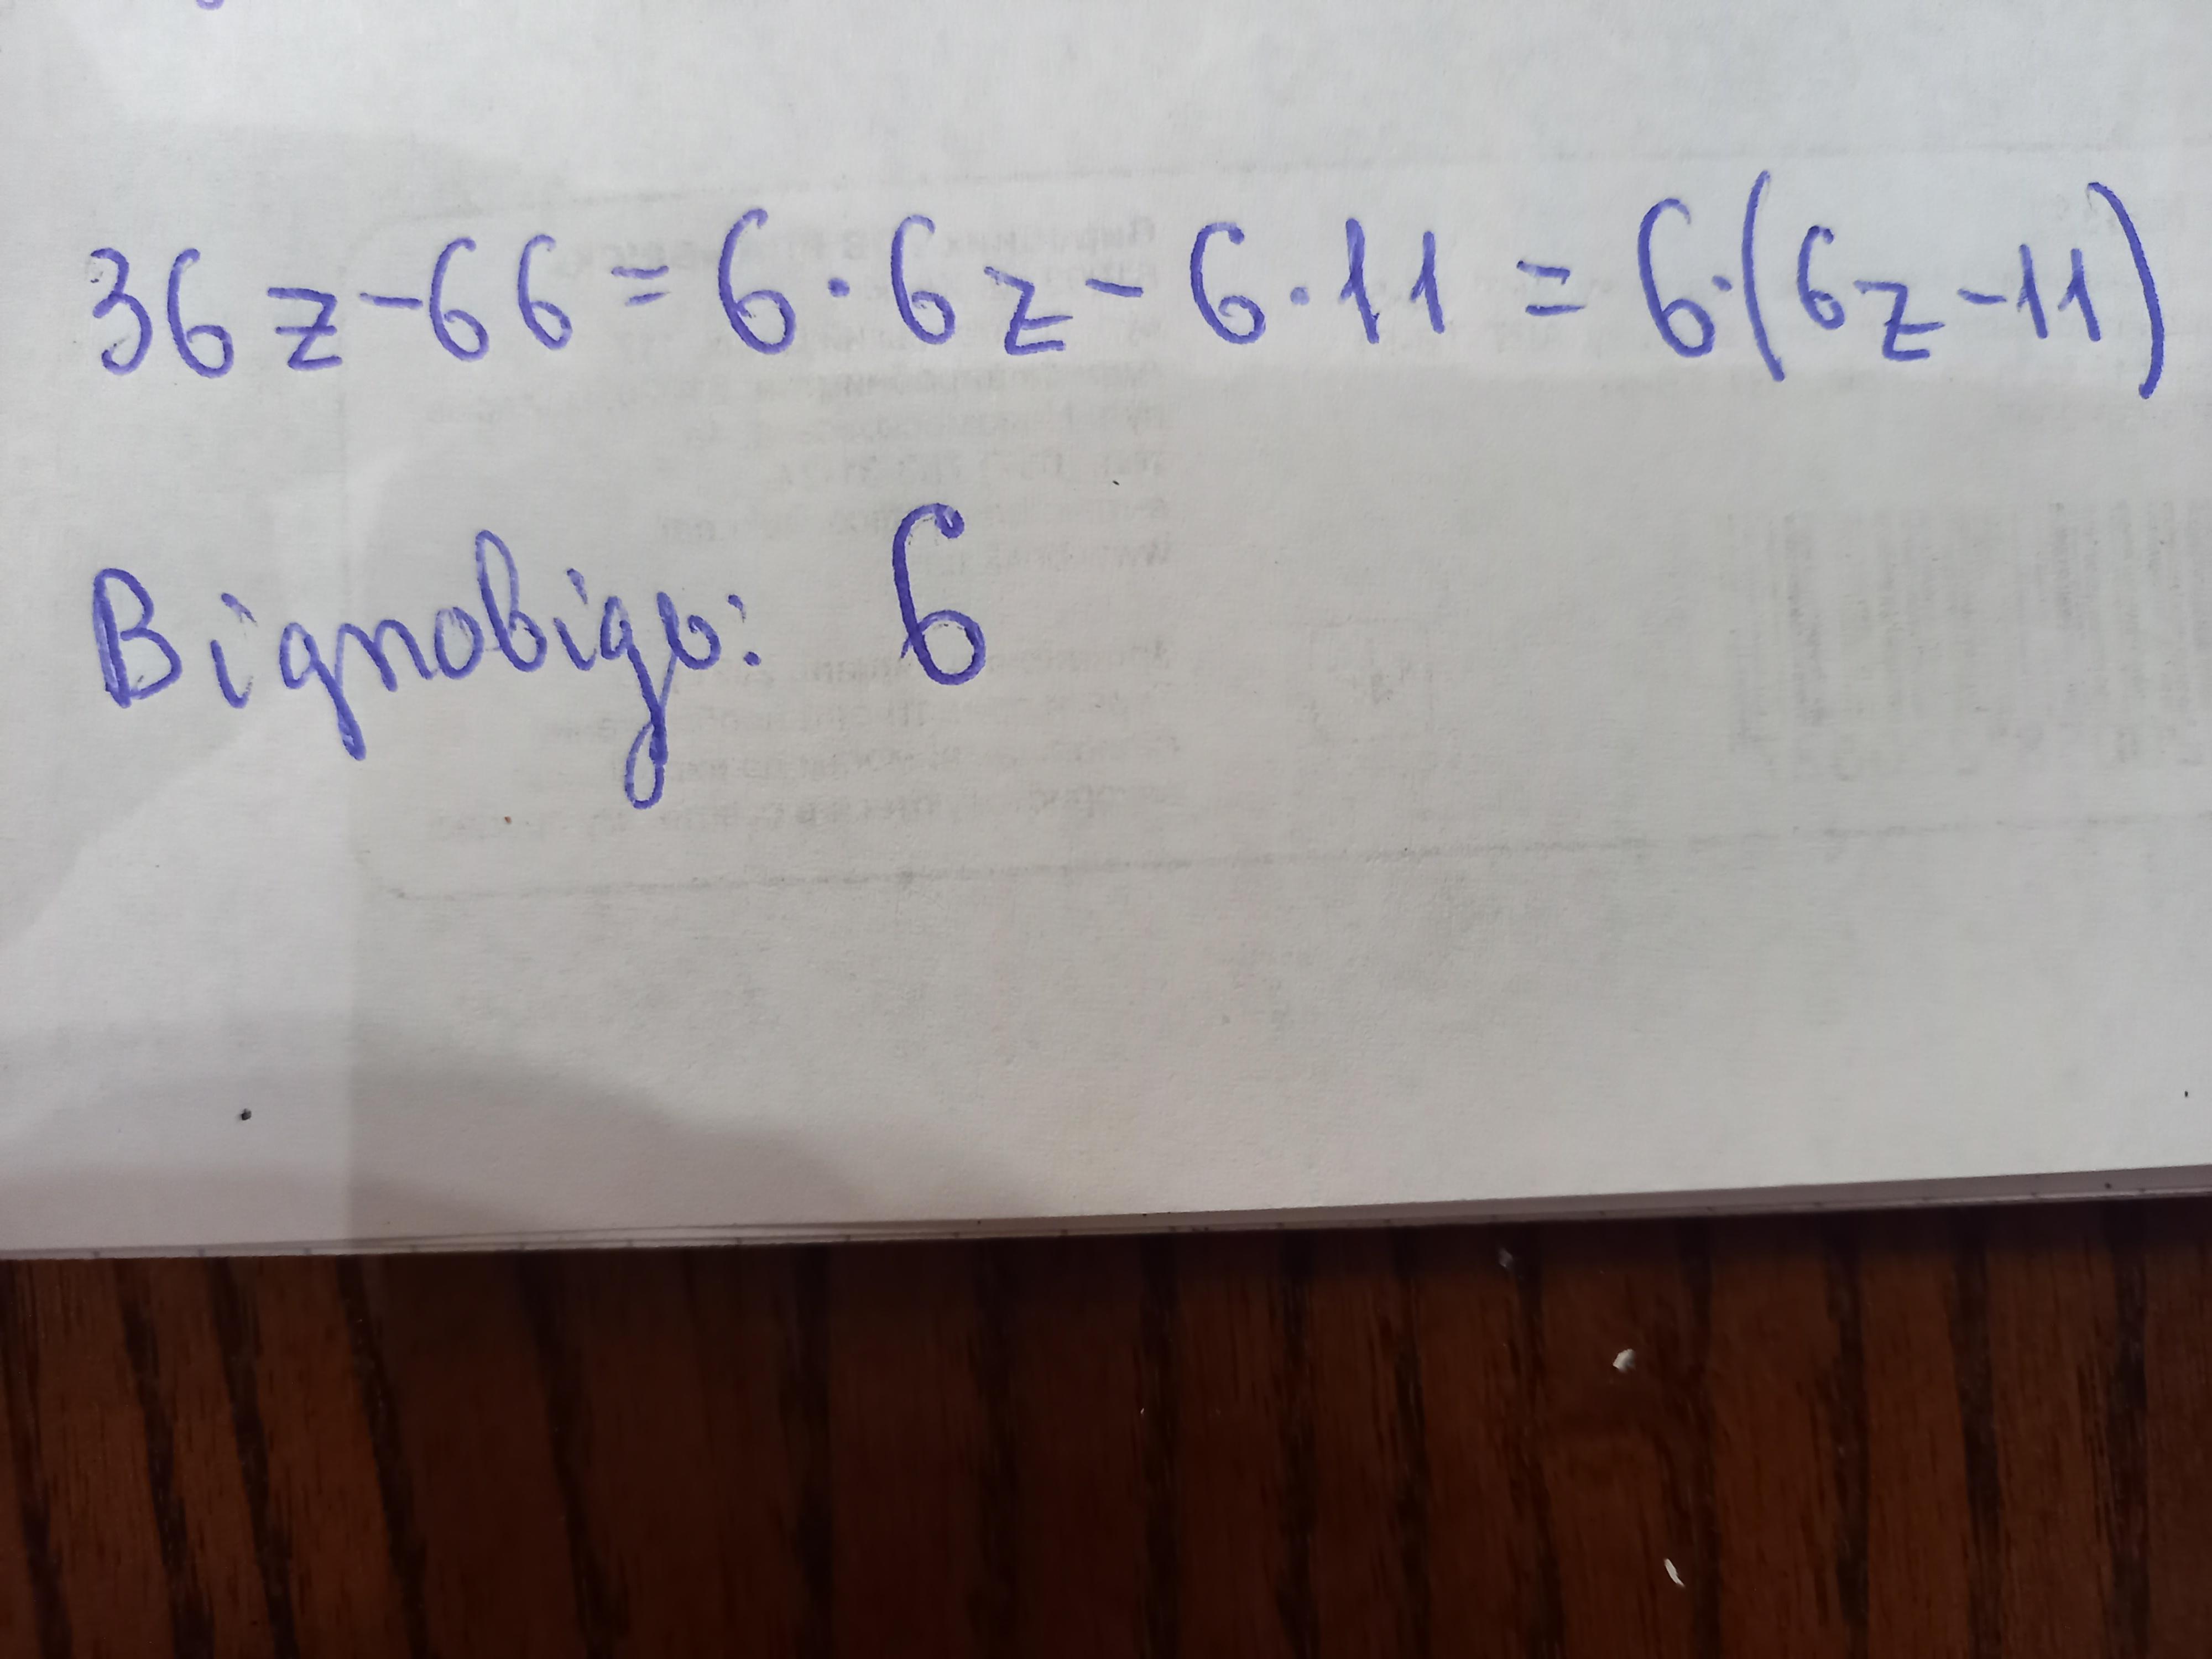 36z-66=6·6z-6·11=6·(6z-11)
Відповідь: 6